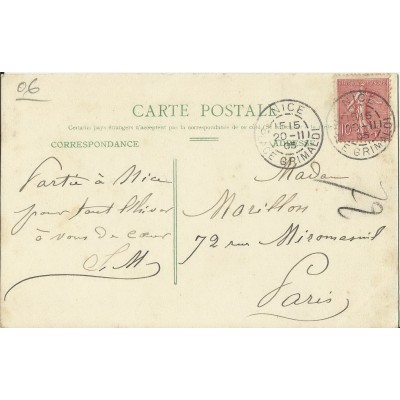 06
CARTE POSTALE
Certains pays étrangers n'acceptent pas la correspondance de ce côté
CORRESPONDANCE
ADRESSE
NICE
15 15
20 - 11
05
PLACE GRIMALDI
Partie à Nice
pour tout l'hiver
à vous de cœur
S. M
Madame
Morillon
72 rue Miromesnil
Paris